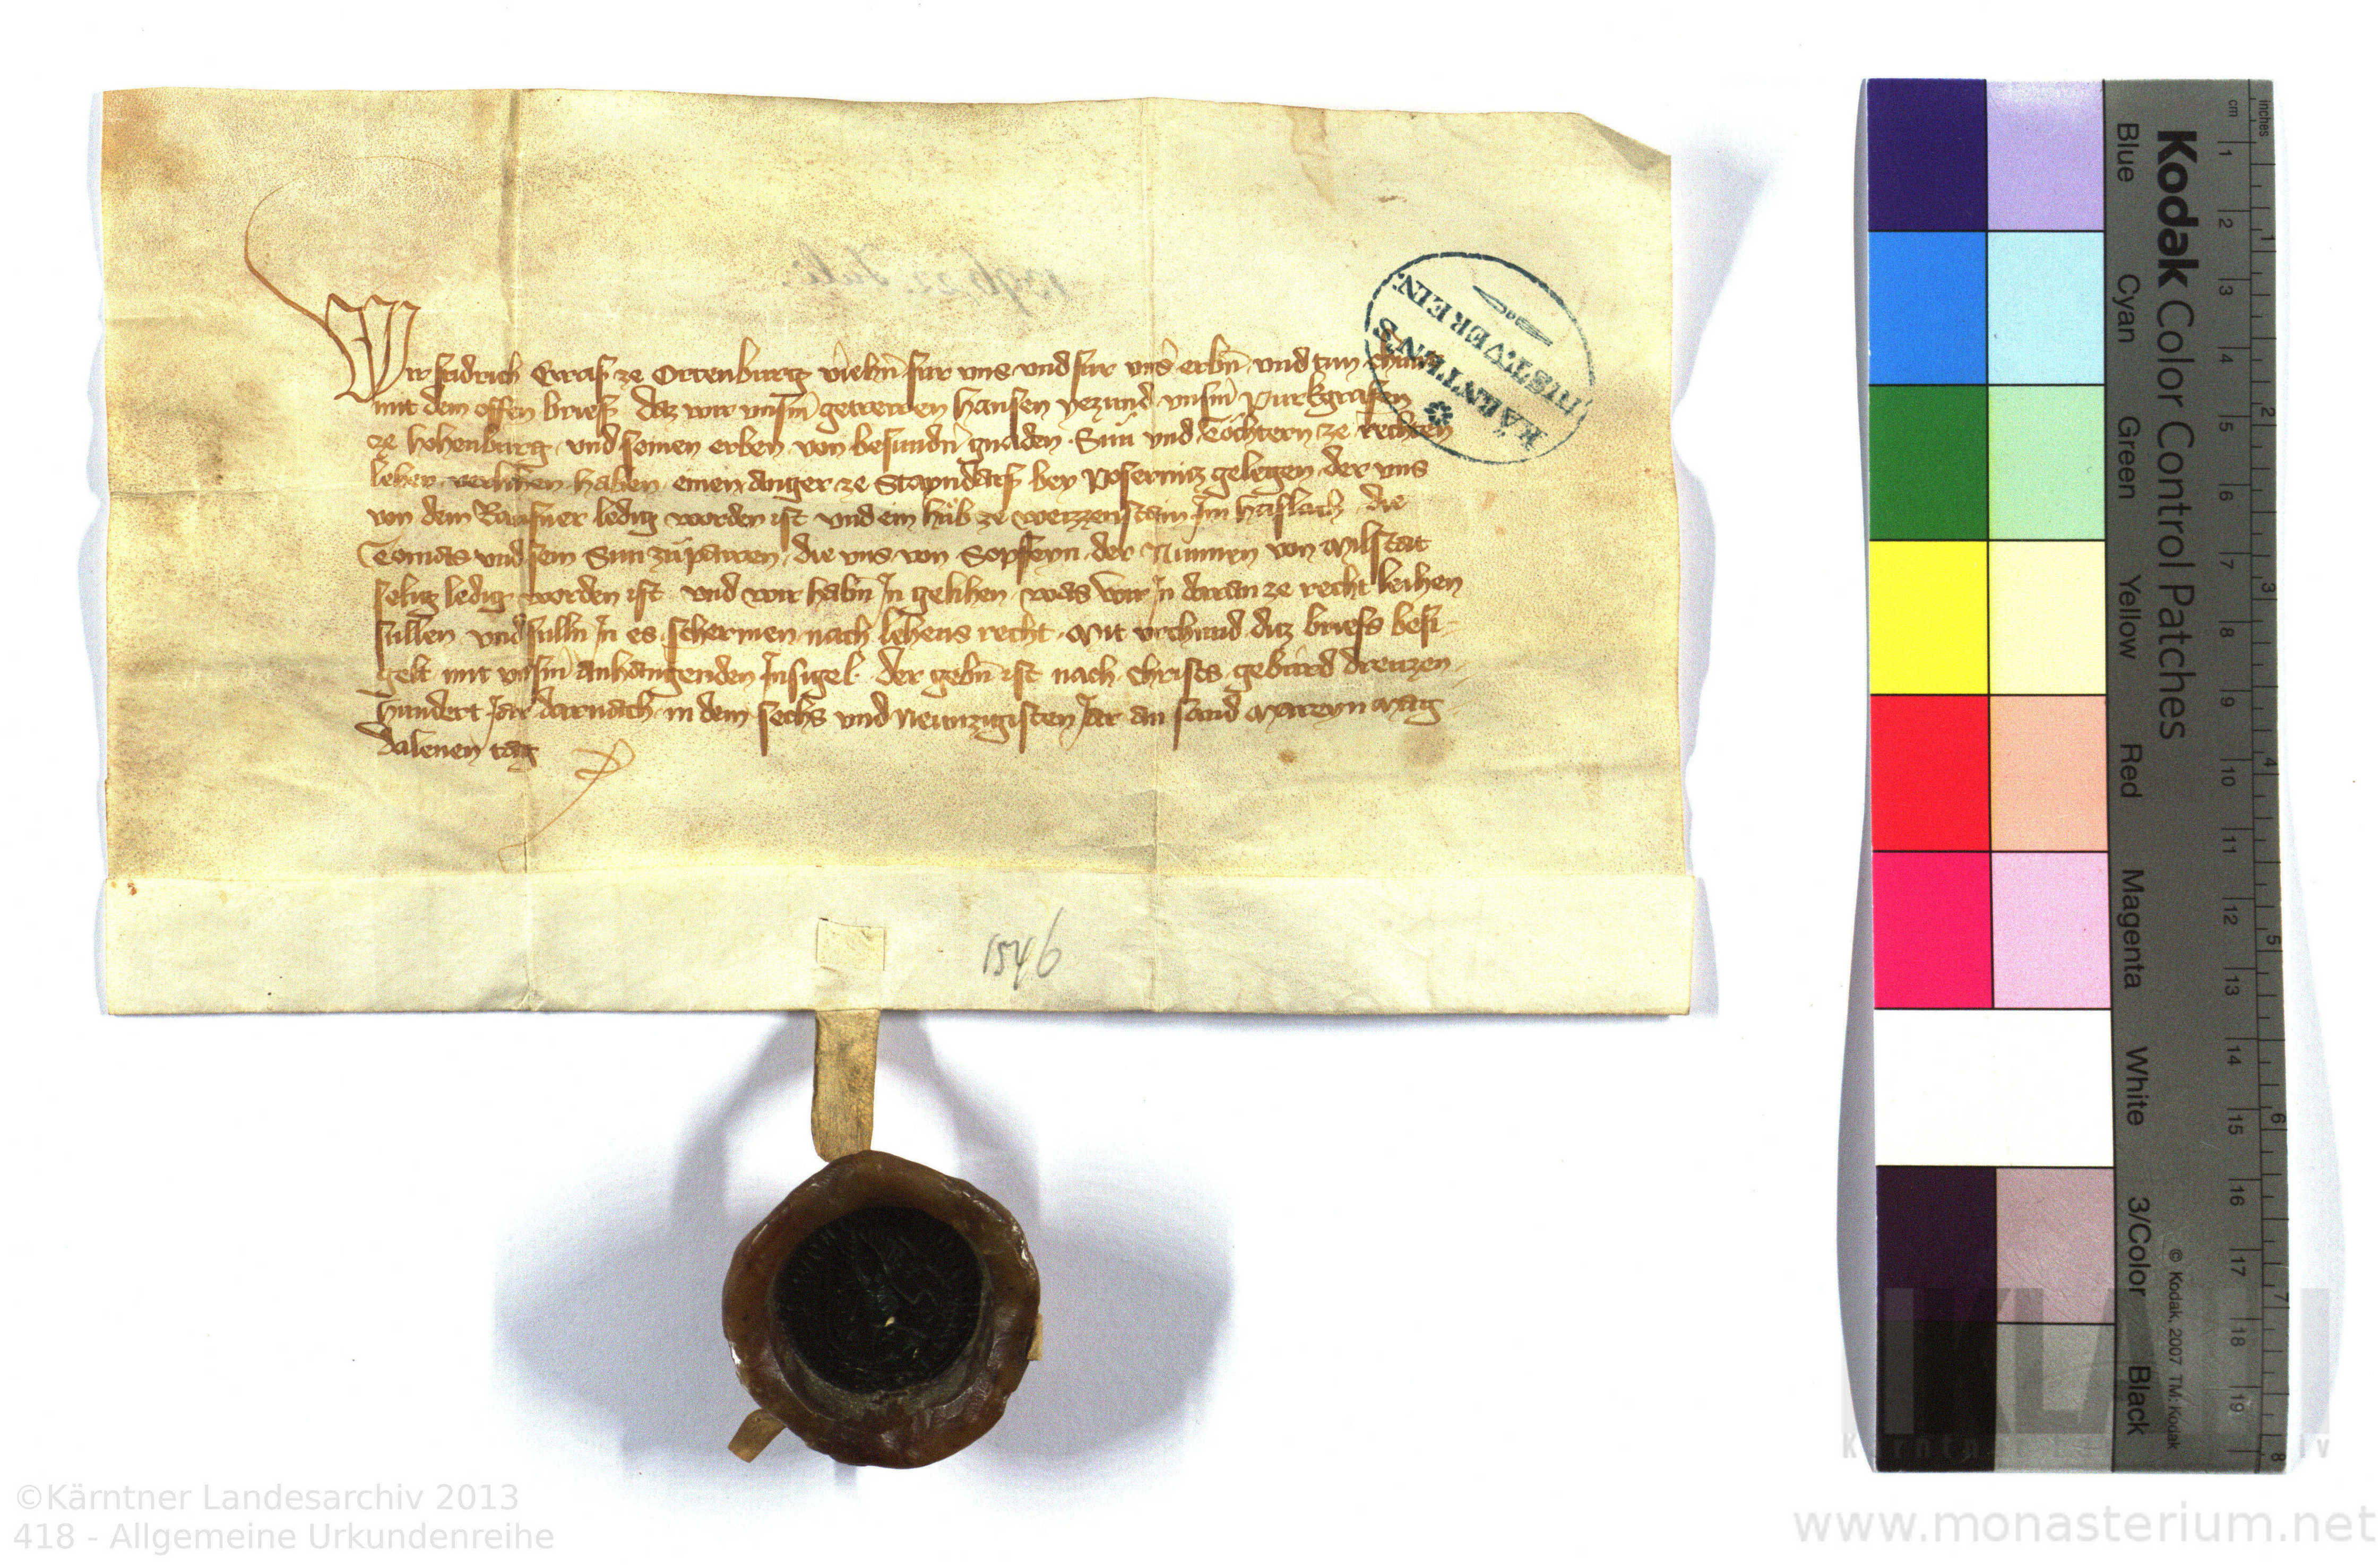 1396 22. Juli.
KÄRNTEN'S
HIST: VEREIN.
Wir fridrich Graf ze Ortenburg v̾iehn̄ fur vns vnd fur vns̾ erbn̄ vnd tun chunt
mit dem offen brief daz wir vns̾m̄ getrewen hansen yezund vns̾m̄ Purkgrafen
ze hohenburg vnd seinen erben von besundn̾ gnaden Sün vnd Töchtern ze rechten
lehen verlihen haben einen anger ze Stayndarf bey Poserniz gelegen der vns
von dem Raufner ledig worden ist vnd ein hůb ze weizzenstain Jm haslach die
Tomas vnd sein Sun zů pawen die vns von Sopfeyn der Nunnen von Milstat
selig ledig worden ist vnd wir habn̄ Jn gelihen was wir Jn daran ze recht leihen
sullen vnd sulln Jn es schermen nach lehens recht Mit vrchund diz briefs besi-
gelt mit vns̾m̄ anhangenden Jnsigel der gebn̄ ist nach Christs gebůrd drewzen-
hundert Jar darnach in dem sechs vnd Newnzigisten Jar an sand Mareyn Mag-
dalenen tag
1546
Kodak Color Control Patches
Blue Cyan Green Yellow Red Magenta White 3/Color Black
© Kodak, 2007 TM: Kodak
cm 1 2 3 4 5 6 7 8 9 10 11 12 13 14 15 16 17 18 19
inches 1 2 3 4 5 6 7 8
KLA
©Kärntner Landesarchiv 2013
418 - Allgemeine Urkundenreihe
www.monasterium.net